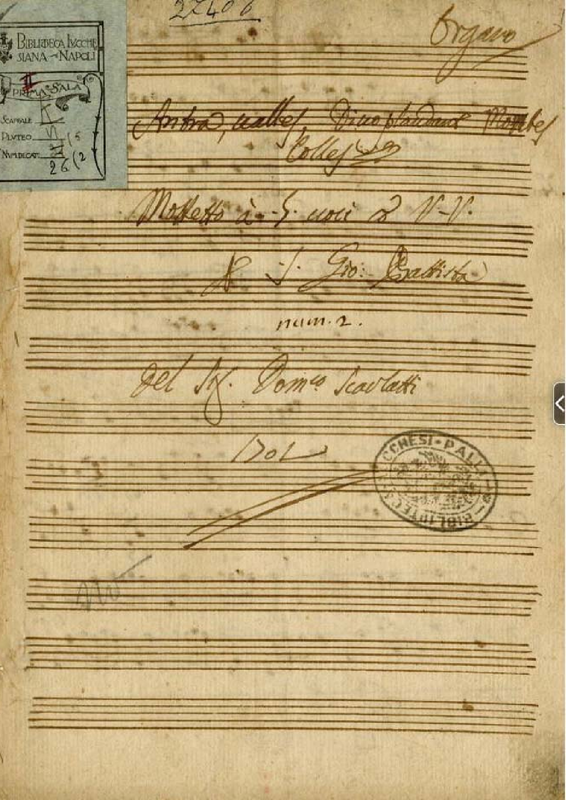 27406
Organo
BIBLIOTECA LUCCHE
SIANA - NAPOLI
PRIMA SALA
SCAFFALE
PLUTEO
N.DI CAT.
26 (2
Antra, valles, Divo plaudant Montes
Colles
Motetto à 5. voci
S. Gio: Battista
num. 2.
Del Sig. Domco Scarlatti
1701
CCHESI-PALLI
BIBLIOTEC